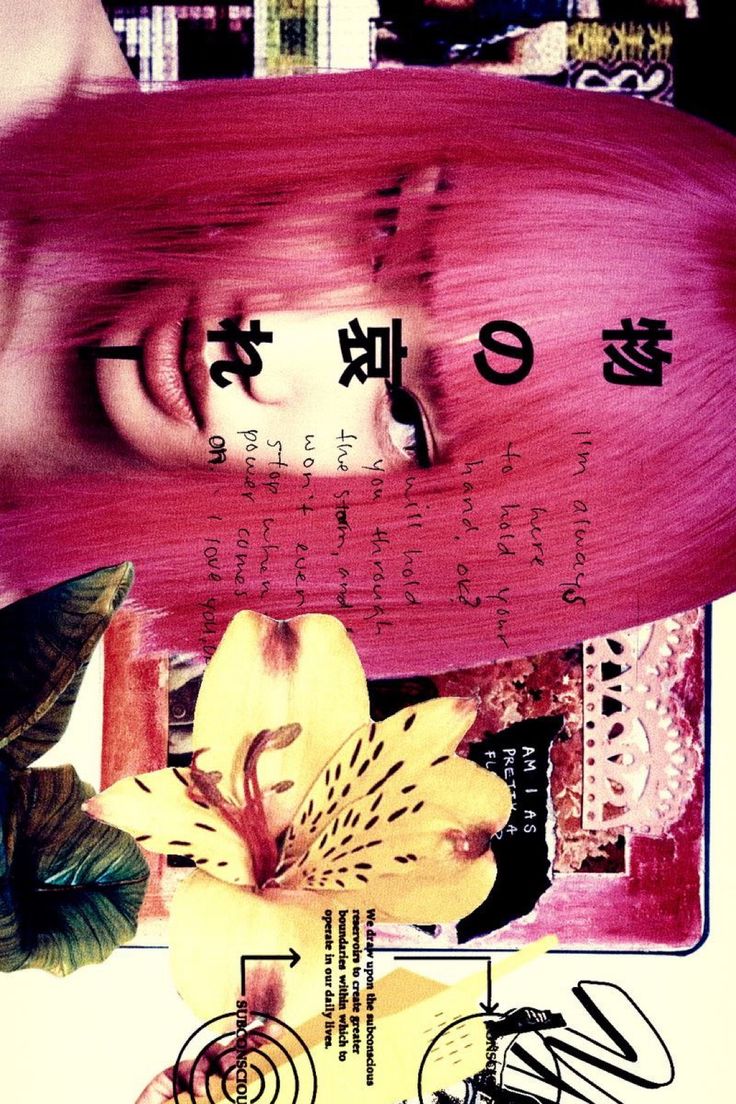 物の哀れ
I'm always
here
to hold your
hand, ok?
will hold
you through
the storm, and i
won't even
stop when
power comes
on. i love you.
AM I AS
PRETTY A
We draw upon the subconscious
reservoirs to create greater
boundaries within which to
operate in our daily lives.
SUBCONSCIOU
ONSC